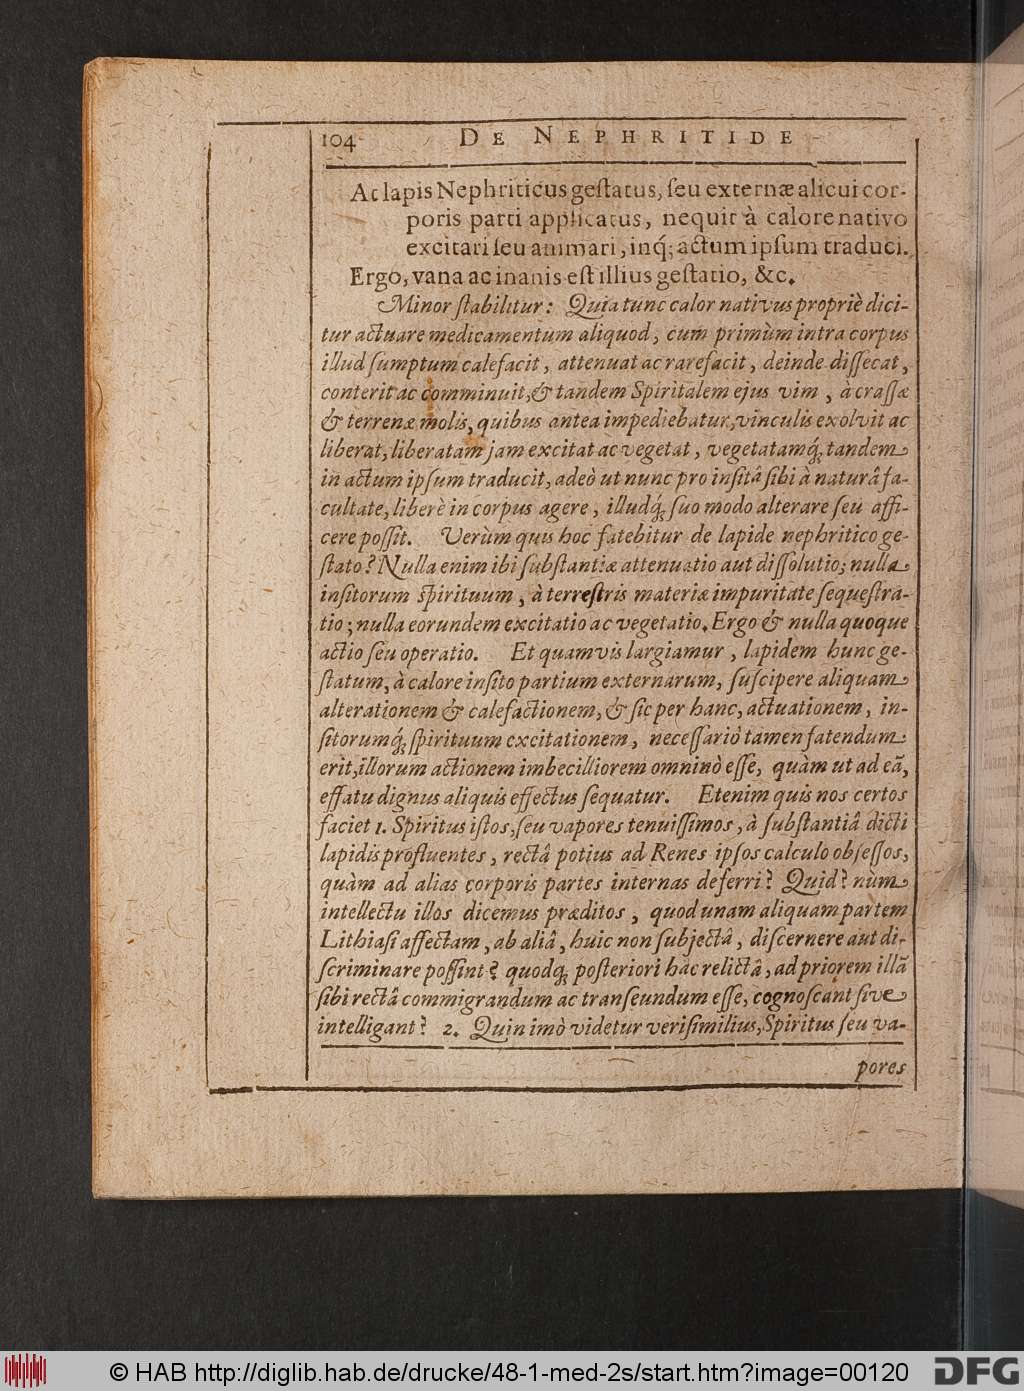 104 DE NEPHRITIDE
At lapis Nephriticus geſtatus, ſeu externæ alicui cor-
poris parti applicatus, nequit à calore nativo
excitari ſeu animari, inq́; actum ipſum traduci.
Ergo, vana ac inanis eſt illius geſtatio, &c.
Minor ſtabilitur: Quia tunc calor nativus propriè dici-
tur actuare medicamentum aliquod, cum primùm intra corpus
illud ſumptum calefacit, attenuat ac rarefacit, deinde diſſecat,
conterit ac comminuit, & tandem Spiritalem ejus vim, à craſſæ
& terrenæ molis, quibus antea impediebatur, vinculis exolvit ac
liberat, liberatam jam excitat ac vegetat, vegetatamq́; tandem
in actum ipſum traducit, adeò ut nunc pro inſitâ ſibi à naturâ fa-
cultate, liberè in corpus agere, illudq́; ſuo modo alterare ſeu affi-
cere poſſit. Verùm quis hoc fatebitur de lapide nephritico ge-
ſtato? Nulla enim ibi ſubſtantiæ attenuatio aut diſſolutio; nulla
inſitorum ſpirituum, à terreſtris materiæ impuritate ſequeſtra-
tio; nulla eorundem excitatio ac vegetatio. Ergo & nulla quoque
actio ſeu operatio. Et quamvis largiamur, lapidem hunc ge-
ſtatum, à calore inſito partium externarum, ſuſcipere aliquam
alterationem & calefactionem, & ſic per hanc, actuationem, in-
ſitorumq́; ſpirituum excitationem, neceſſariò tamen fatendum
erit, illorum actionem imbecilliorem omninò eſſe, quàm ut ad eã,
effatu dignus aliquis effectus ſequatur. Etenim quis nos certos
faciet 1. Spiritus iſtos, ſeu vapores tenuiſſimos, à ſubſtantiâ dicti
lapidis profluentes, rectâ potius ad Renes ipſos calculo obſeſſos,
quàm ad alias corporis partes internas deferri? Quid? nùm
intellectu illos dicemus præditos, quod unam aliquam partem
Lithiaſi affectam, ab aliâ, huic non ſubjectâ, diſcernere aut di-
ſcriminare poſſint? quodq́; poſteriori hâc relictâ, ad priorem illã
ſibi rectâ commigrandum ac tranſeundum eſſe, cognoſcant ſive
intelligant? 2. Quin imò videtur veriſimilius, Spiritus ſeu va-
pores
© HAB http://diglib.hab.de/drucke/48-1-med-2s/start.htm?image=00120 DFG